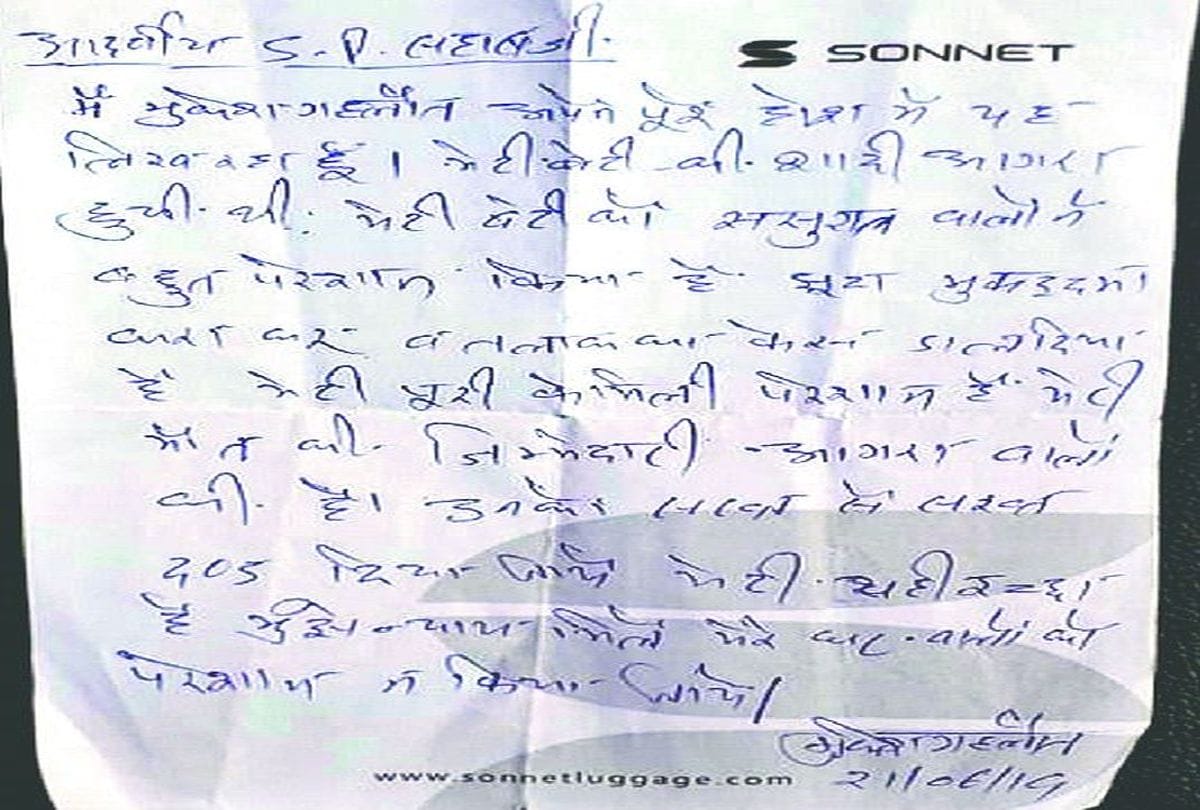 आदरणीय S.P. साहब जी.
SONNET
मैं मुकेश गहलौत अपने पूरे होश में यह
लिख रहा हूँ। मेरी बेटी की शादी आगरा
हुयी थी. मेरी बेटी को ससुराल वालो ने
बहुत परेशान किया है झूठा मुकद्दमा
करा कर व तलाक का केस डाल दिया
है मेरी पूरी फेमिली परेशान है मेरी
मौत की जिम्मेदारी आगरा वालों
की है। उनको सख्त से सख्त
दण्ड दिया जाये मेरी यही इच्छा
है मुझे न्याय मिले मेरे घर वालों को
परेशान न किया जाये।
मुकेश गहलौत
21/06/19
www.sonnetluggage.com